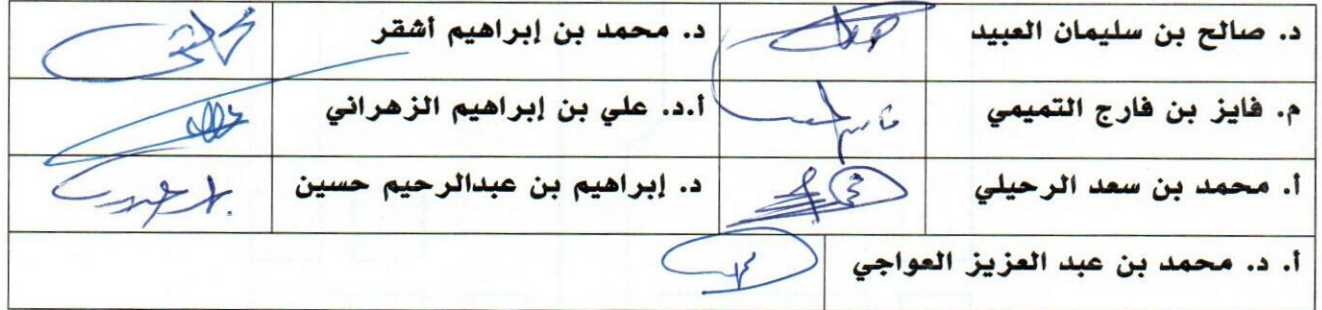 د. صالح بن سليمان العبيد
د. محمد بن إبراهيم أشقر
م. فايز بن فارج التميمي
أ.د. علي بن إبراهيم الزهراني
أ. محمد بن سعد الرحيلي
د. إبراهيم بن عبدالرحيم حسين
أ. د. محمد بن عبد العزيز العواجي